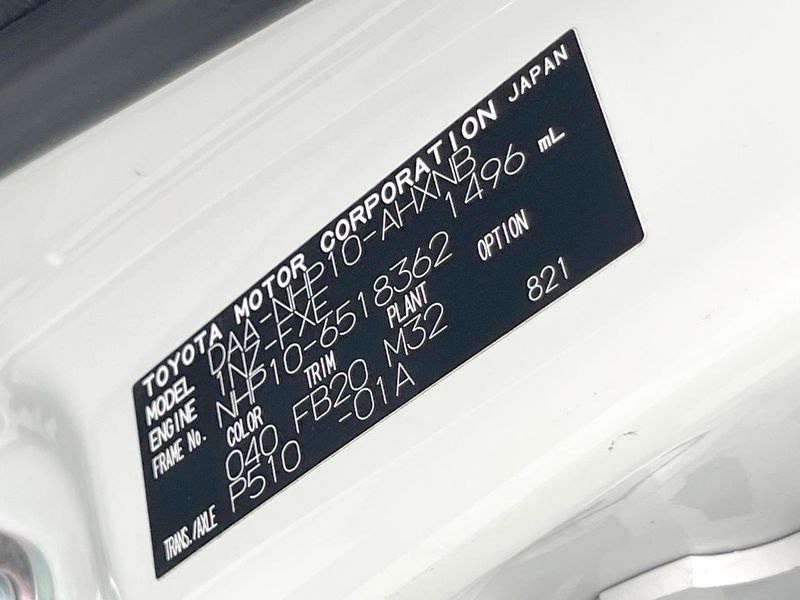 TOYOTA MOTOR CORPORATION JAPAN
MODEL DAA-NHP10-AHXNB
ENGINE 1NZ-FXE 1496 mL
FRAME No. NHP10-6518362
COLOR TRIM PLANT OPTION
040 FB20 M32 821
TRANS./AXLE P510 -01A